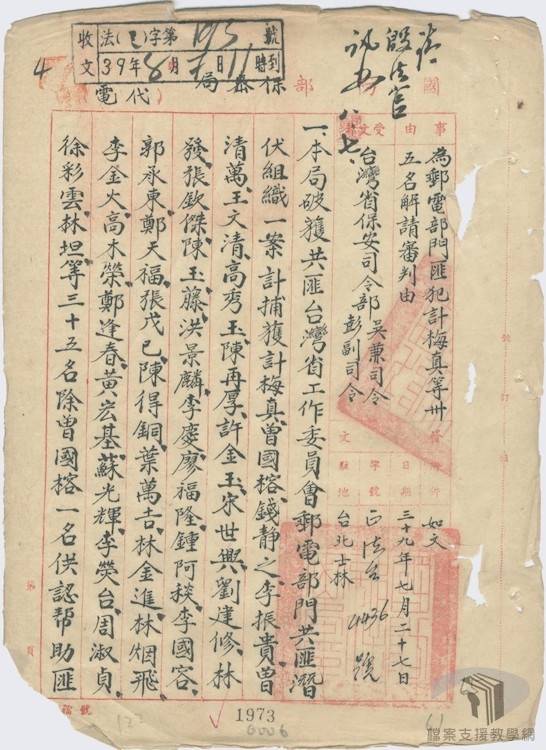 國 部 保 局
代電
收文 法(乙)字第 1073 號
39年8月 日 11時到
4
殷法官
訊辦 八、七
事由
為郵電部門匪犯計梅真等卅
五名解請審判由
受文者
台灣省保安司令部 吳兼司令
彭副司令
附件 如文
日期 三十九年七月二十七日
字號 正法台 4436 號
駐地 台北士林
一、本局破獲共匪台灣省工作委員會郵電部門共匪潛
伏組織一案計捕獲計梅真、曾國榕、錢靜之、李振貴、曾
清萬、王文清、高秀玉、陳再厚、許金玉、宋世興、劉建修、林
發、張欽傑、陳玉藤、洪景麟、李慶、廖福隆、鍾阿棪、李國容、
郭永東、鄭天福、張戊巳、陳得銅、葉萬吉、林金進、林烟飛、
李金火、高木榮、鄭逢春、黃宏基、蘇光輝、李熒台、周淑貞、
徐彩雲、林坦、等三十五名除曾國榕一名供認幫助匪
號
1973
0006
61
檔案支援教學網